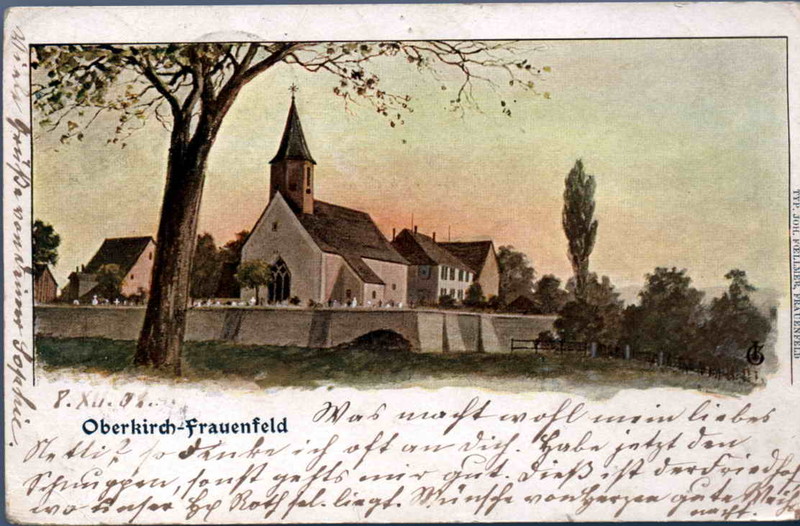 Viele Grüße von Deiner Sophie.
TYP. JOH. FOELLMER, FRAUENFELD
8. XII. 02.
Oberkirch-Frauenfeld
Was macht wohl mein liebes
Netti? so denke ich oft an Dich. Habe jetzt den
Schnuppen, sonst gehts mir gut. Dieß ist der Friedhof
wo unser Roth sel. liegt. Wünsche von Herzen gute Weih
nacht.